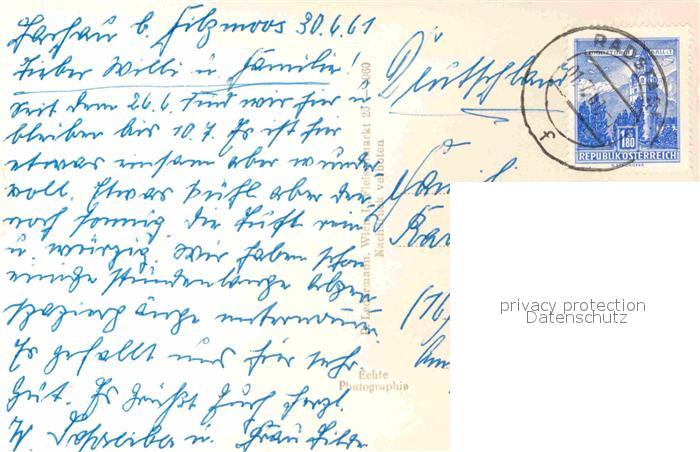 Hachau b. Filzmoos 30.6.61
Lieber Willi u. Familie!
Seit dem 26.6. sind wir hier u.
bleiben bis 10.7. Es ist hier
etwas einsam aber wunder
voll. Etwas kühl aber den
noch sonnig die Luft rein
u. würzig. Wir haben schon
einige stundenlange
Spaziergänge unternommen
Es gefällt uns hier sehr
gut. Es grüßt Euch herzl.
u. Frau Hilde
Deutschland
Famil
(16)
RADS
1.80
REPUBLIK ÖSTERREICH
Wien, Fleischmarkt
Nachdruck verboten
Echte
Photographie
privacy protection
Datenschutz